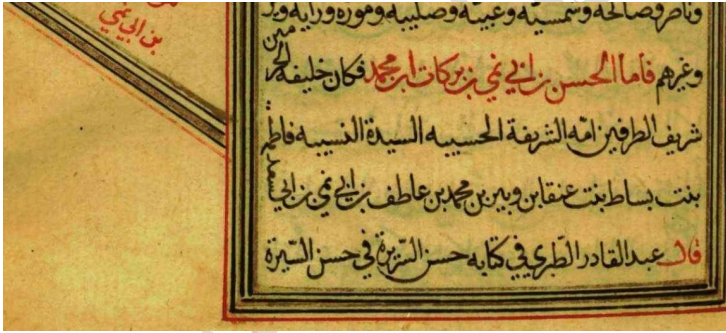 بن ابي نمي
وناصر وصالحه وشمسيه وعبيه وصليبه وموزه ورايه
وغيرهم فاما الحسن بن ابي نمي بن بركات ابن محمد فكان خليفه الحرمين
شريف الطرفين امّه الشريفة الحسيبه السيدة النسيبه فاطمه
بنت بساط بنت عنقا بن وبير بن محمد بن عاطف بن ابي نمي بن ابي سعد
قال عبد القادر الطبري في كتابه حسن السّريرة في حسن السّيرة